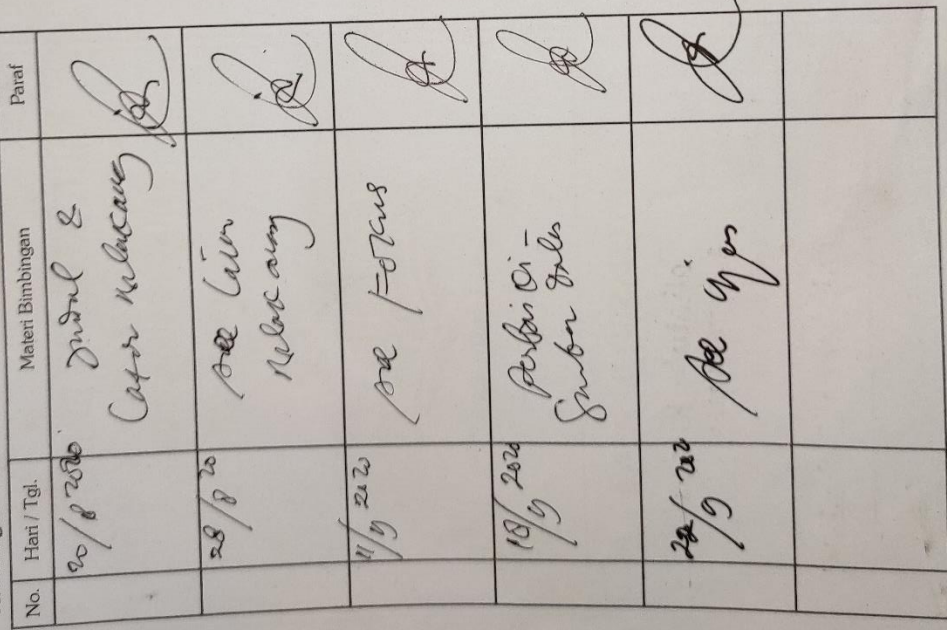 No. Hari / Tgl. Materi Bimbingan Paraf
20/8 2020 Judul &
Latar Belakang
28/8 20 Acc Latar
Belakang
11/9 2020 Acc Fokus
18/9 2020 Perbaiki
Sumber
/9 2020 Acc